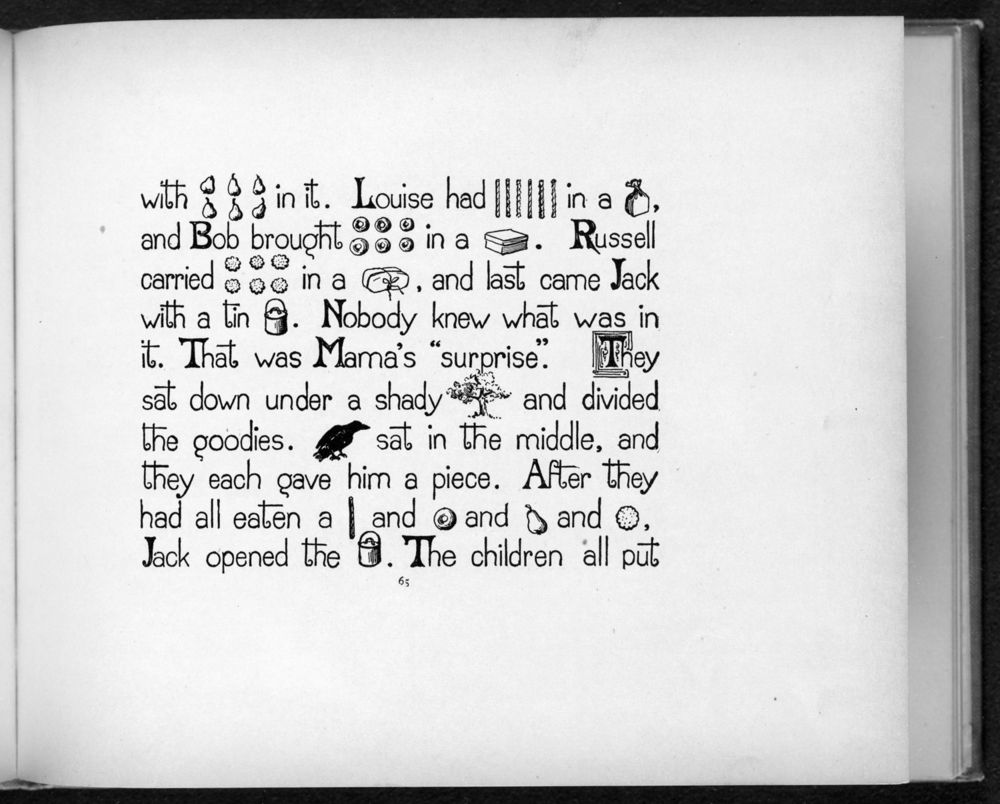 with in it. Louise had in a ,
and Bob brought in a . Russell
carried in a , and last came Jack
with a tin . Nobody knew what was in
it. That was Mama's “surprise”. They
sat down under a shady and divided
the goodies. sat in the middle, and
they each gave him a piece. After they
had all eaten a and and and ,
Jack opened the . The children all put
65